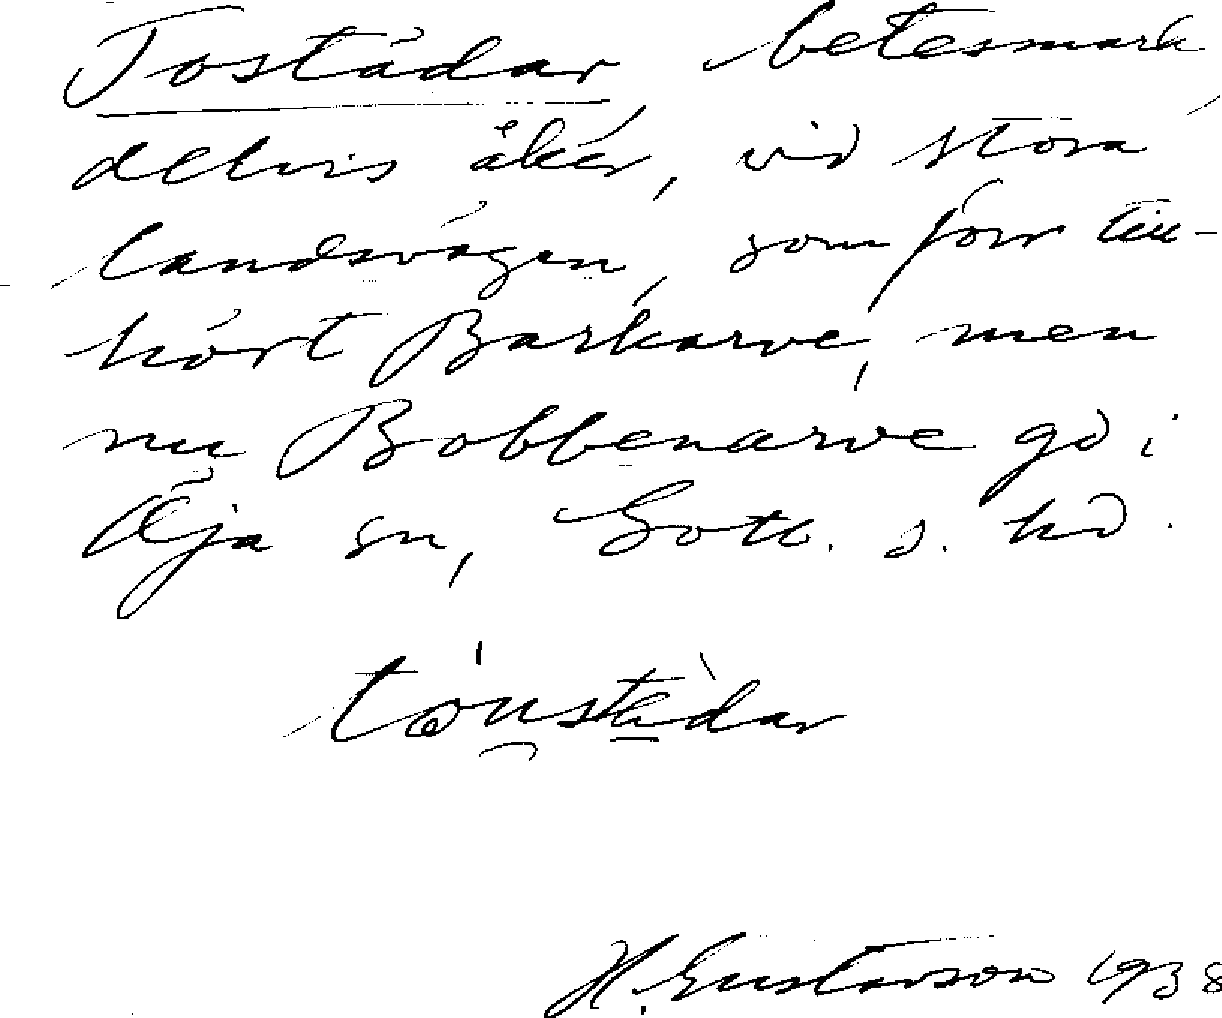 Tostädar, betesmark,
delvis åker, vid stora
landsvägen, som förr till-
hört Barkarve, men
nu Bobbenarve gd i
Öja sn, Gotl. s. hd.
H. Gustavson 1938